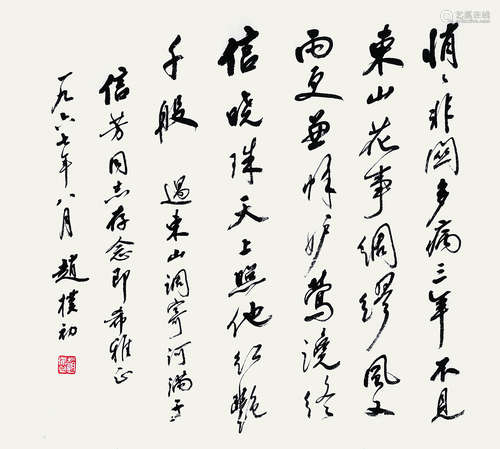 悄〻非関多病三年不見
東山花事綢繆風又
雨更兼蜂妒鶯讒終
信曉珠天上照他红艷
千般 過東山調寄河满子
信芳同志存念即希雅正
一九六七年八月 趙樸初